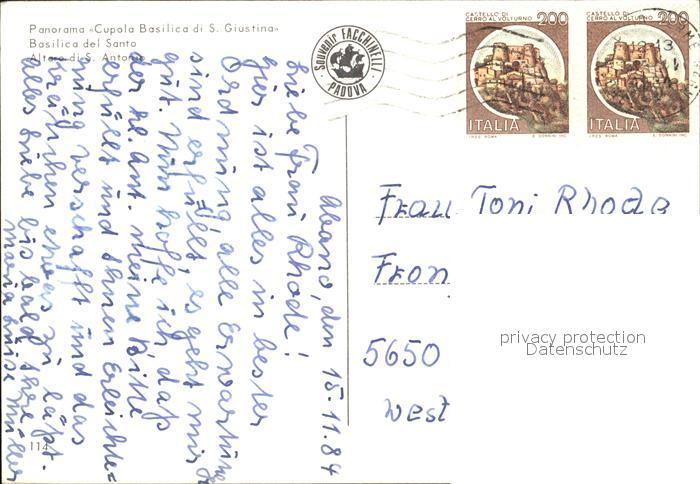 Panorama «Cupola Basilica di S. Giustina»
Basilica del Santo
Altare di S. Antonio
Souvenir FACCHINELLI - PADOVA
CASTELLO DI CERRO AL VOLTURNO 200
ITALIA
I.P.Z.S. ROMA E. DONNINI INC.
CASTELLO DI CERRO AL VOLTURNO 200
ITALIA
I.P.Z.S. ROMA E. DONNINI INC.
13
Abano, den 15.11.84
Liebe Frau Rhode!
Hier ist alles in bester
Ordnung, alle Erwartungen
sind erfüllt, es geht mir
gut. Nun hoffe ich daß
der hl. Ant. meine Bitte
erfüllt und Ihnen Erleichte=
rung verschafft und das
etwas zu läßt.
alles Liebe bis bald Ihre
Maria Luise Müller
Frau Toni Rhode
Fron
5650
West
privacy protection
Datenschutz
114